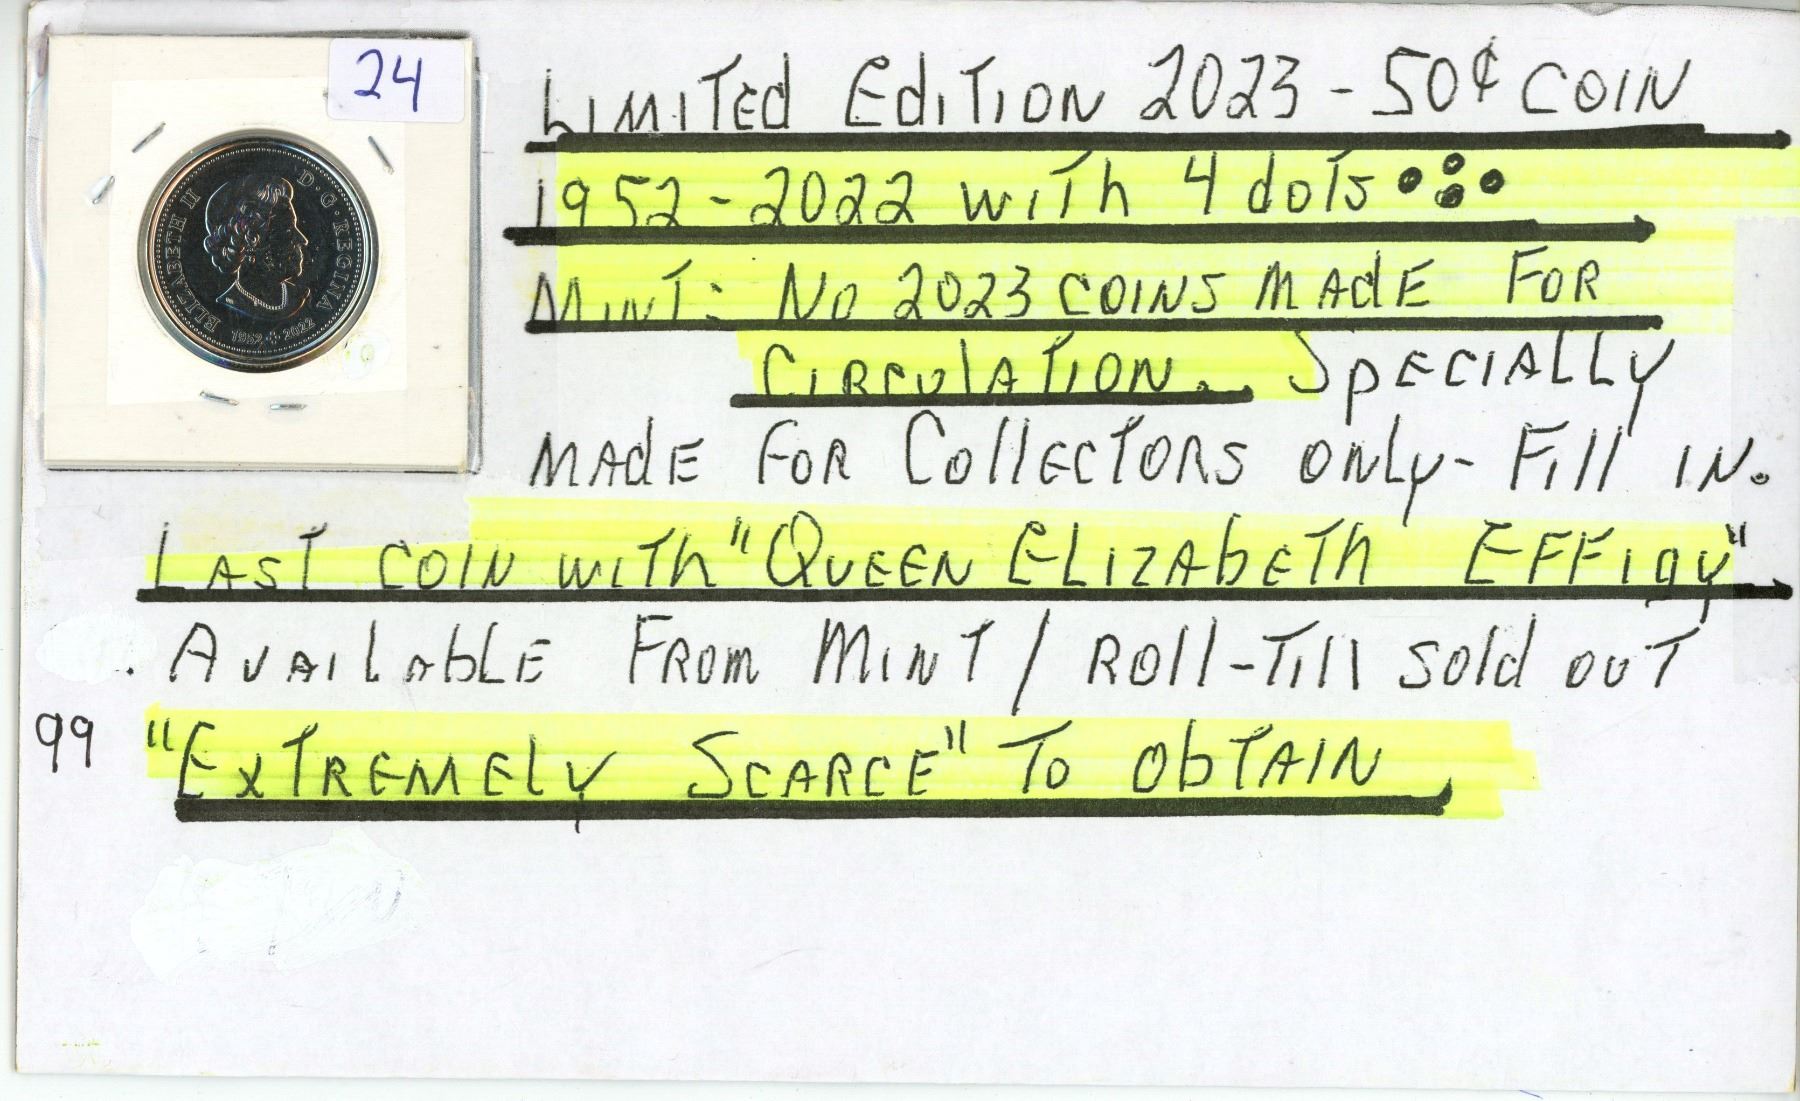 24
ELIZABETH II D·G·REGINA
1952 2022
LIMITED EDITION 2023 - 50¢ COIN
1952-2022 WITH 4 dOTS
MINT: NO 2023 COINS MADE FOR
CIRCULATION. SPECIALLY
MADE FOR COLLECTORS ONLY- FILL IN.
LAST COIN WITH "QUEEN ELIZABETH EFFIGY"
. AVAILABLE FROM MINT / ROLL-TILL SOLD OUT
99 "EXTREMELY SCARCE" TO OBTAIN